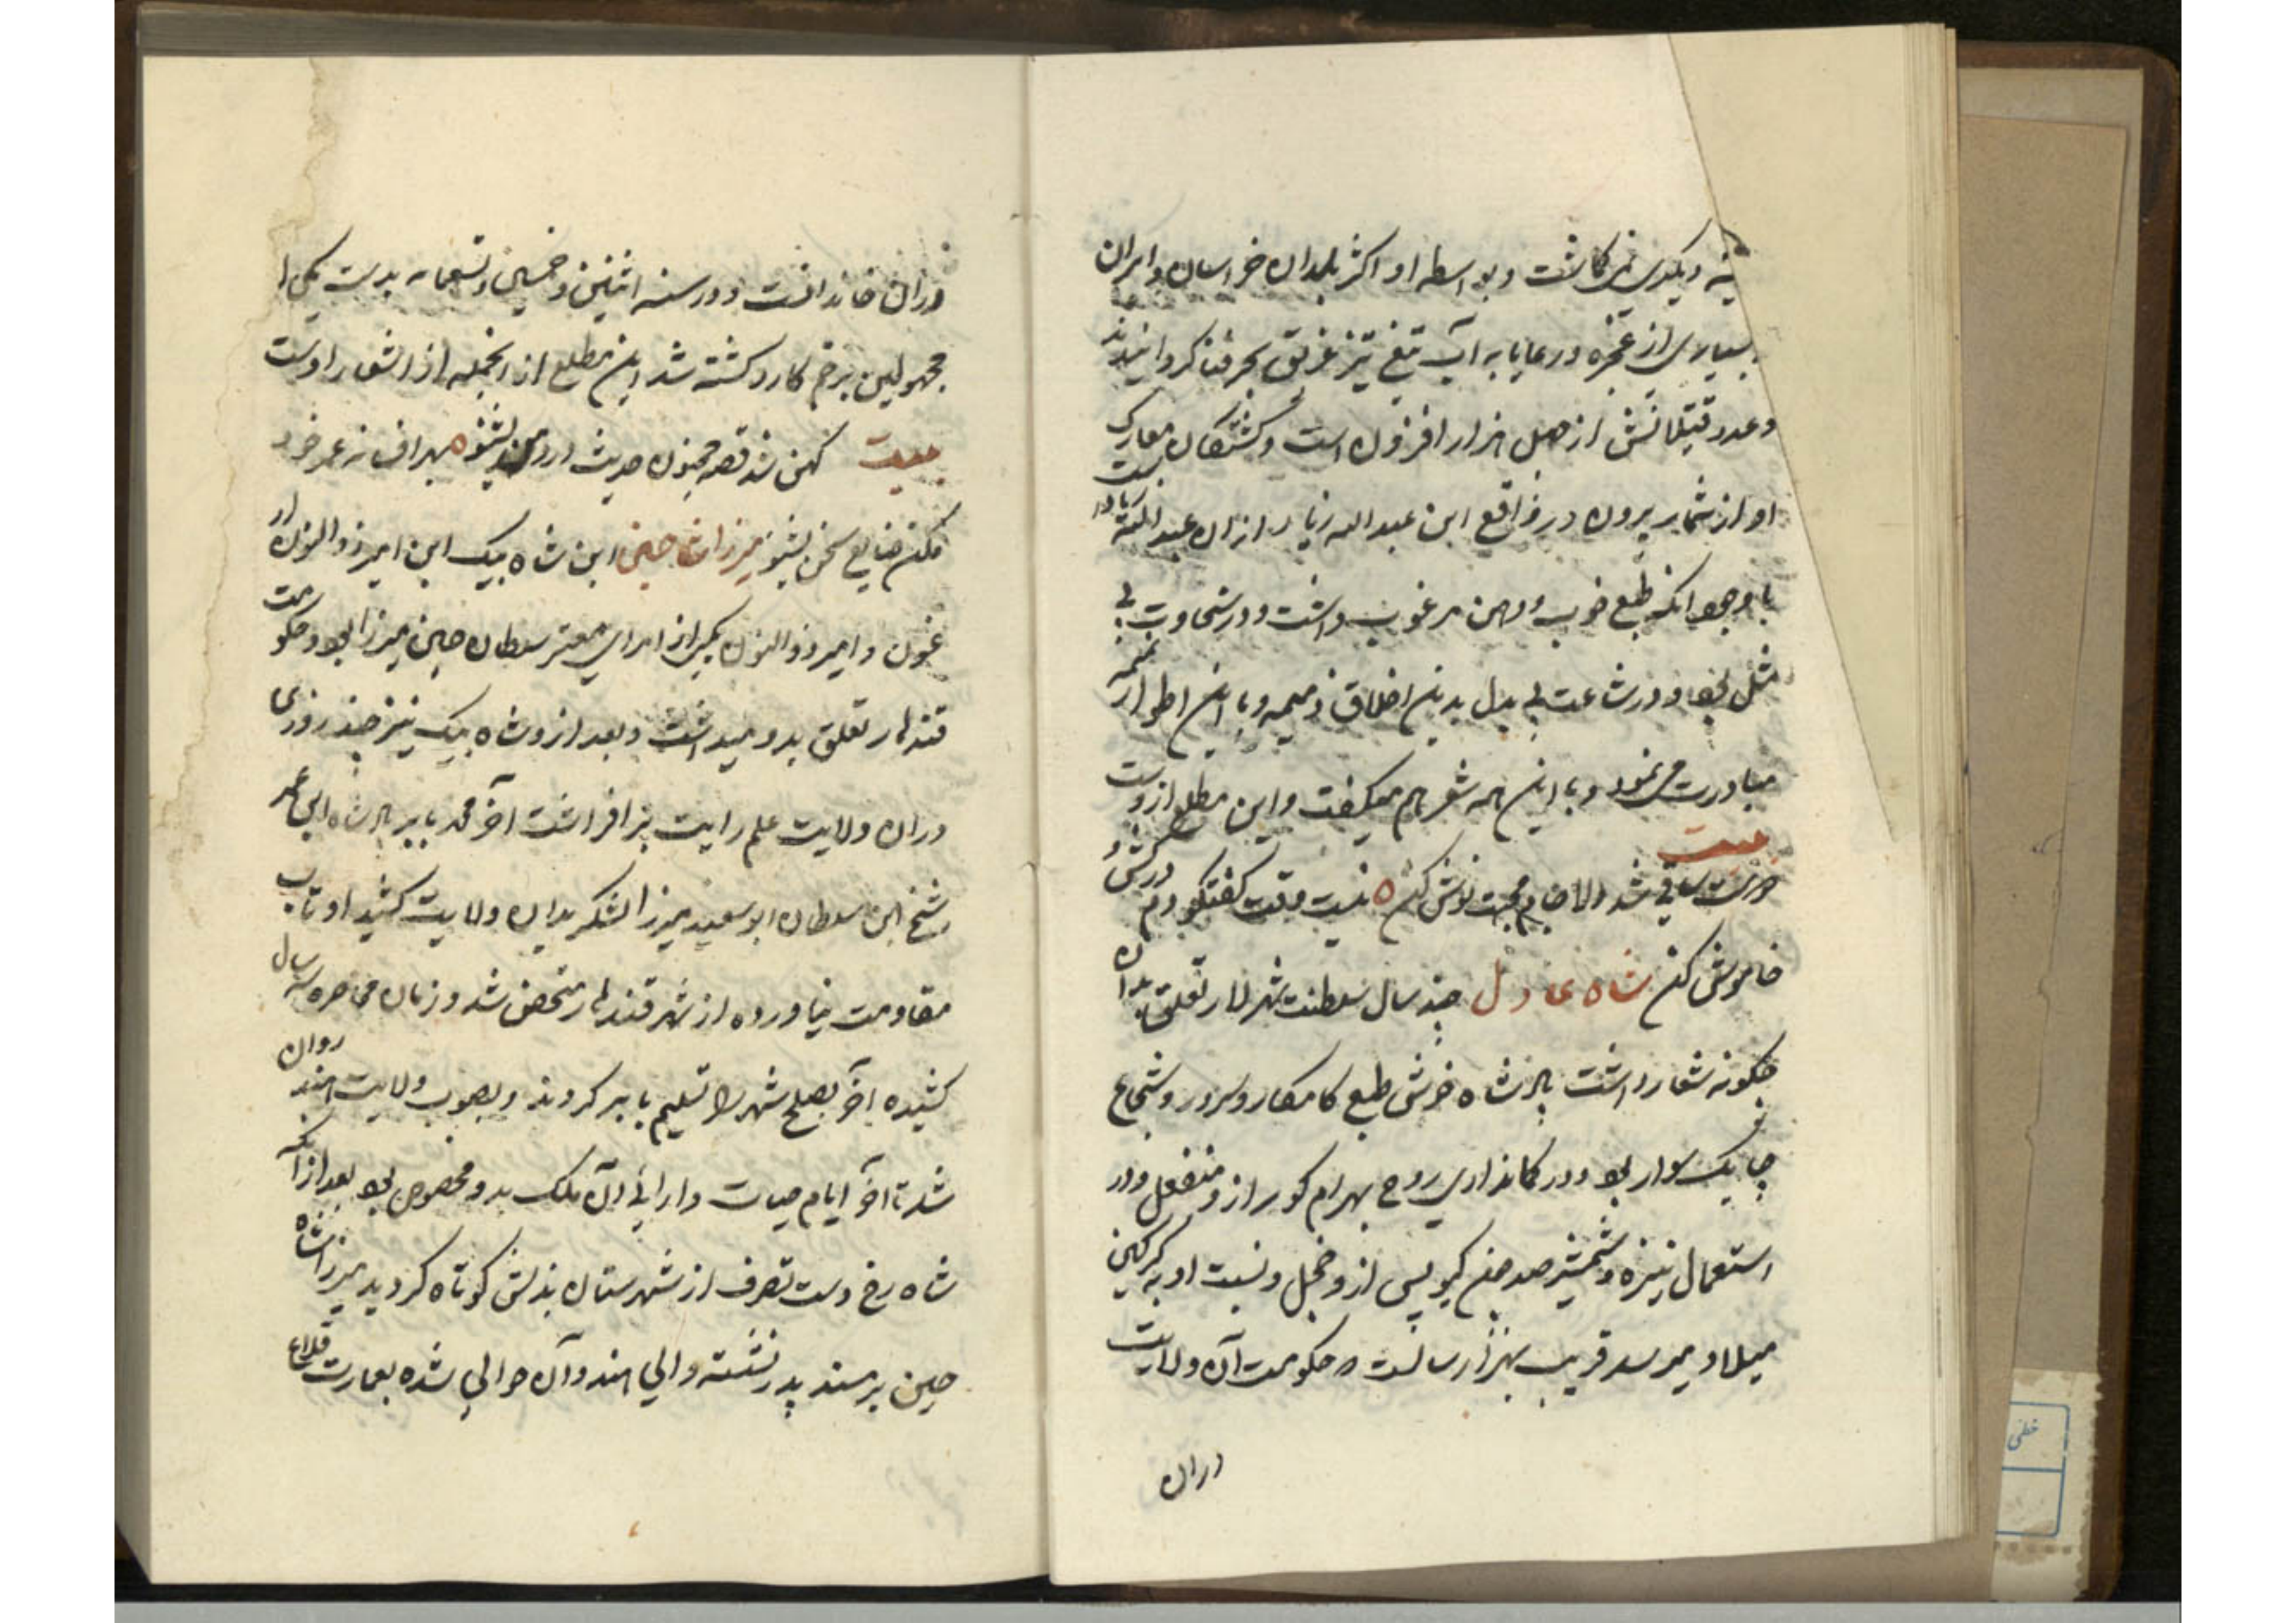 نه و یکدی نمی گماشت و بواسطه او اکثر بلدان خراسان و ایران
بسیاری از عجزه و رعایا به آب تیغ تیز غریق بحر فنا گردانیدند
و عدد قتیلانش از چهل هزار افزون است و کشتگان معارک
او از شمار بیرون در واقع ابن عبدالله زیاد از آن عبدالله
با وجود آنکه طبع خوب و ذهن مرغوب داشت و در سخاوت بی
مثل بود و در شجاعت بی بدل بدین اخلاق ذمیمه و با این اطوار
مبادرت می نمود و با این همه شعر هم میگفت و این مطلع ازوست
بیت
ساقی شد دلا جام محبت نوش کن ه نیست وقت گفتگو دم درکش و
خاموش کن شاه عادل چند سال سلطنت شهر لار تعلق بدان
چگونه شعار داشت پادشاه خوش طبع کامکار و سرور و شجاع
چابک سوار بود و در کمانداری روح بهرام گور از و منفعل و در
استعمال نیزه و شمشیر صد چون گیو پس از و خجل و نسبت او به گرگین
میلاد میرسد قریب بهزار سالست که حکومت آن ولایت
دران
دران خاندانست و در سنه اثنین و خمسین و تسعمائه بدست یکی ا
مجهولین بزخم کارد کشته شد این مطلع از آنجمله از اشعار اوست
بیت کهن شد قصه مجنون حدیث درد من بشنو ه بهر افسانه عمر خود
مکن ضایع سخن بشنو میرزا شاه حسین ابن شاه بیک ابن امیر ذوالنون ار
غون و امیر ذوالنون یکی از امرای معتبر سلطان حسین میرزا بود و حکومت
قندهار تعلق بدو میداشت و بعد از و شاه بیک نیز چند روزی
دران ولایت علم رایت برافراشت آخر محمد بابر پادشاه ابن عمر
شیخ ابن سلطان ابوسعید میرزا لشکر بدان ولایت کشید او تاب
مقاومت نیاورده از شهر قندهار متحصن شد و زمان محاصره سه سال
کشیده آخر بصلح شهر را تسلیم بابر کردند و بصوب ولایت هند روان
شد تا آخر ایام حیات دارائی آن ملک بدو مخصوص بود بعد از آنکه
شاه رخ دست تصرف از شهرستان بدنش کوتاه گردید میرزا شاه
حسین بر مسند پدر نشسته والی هند و آن حوالی شده بعمارت قلاع